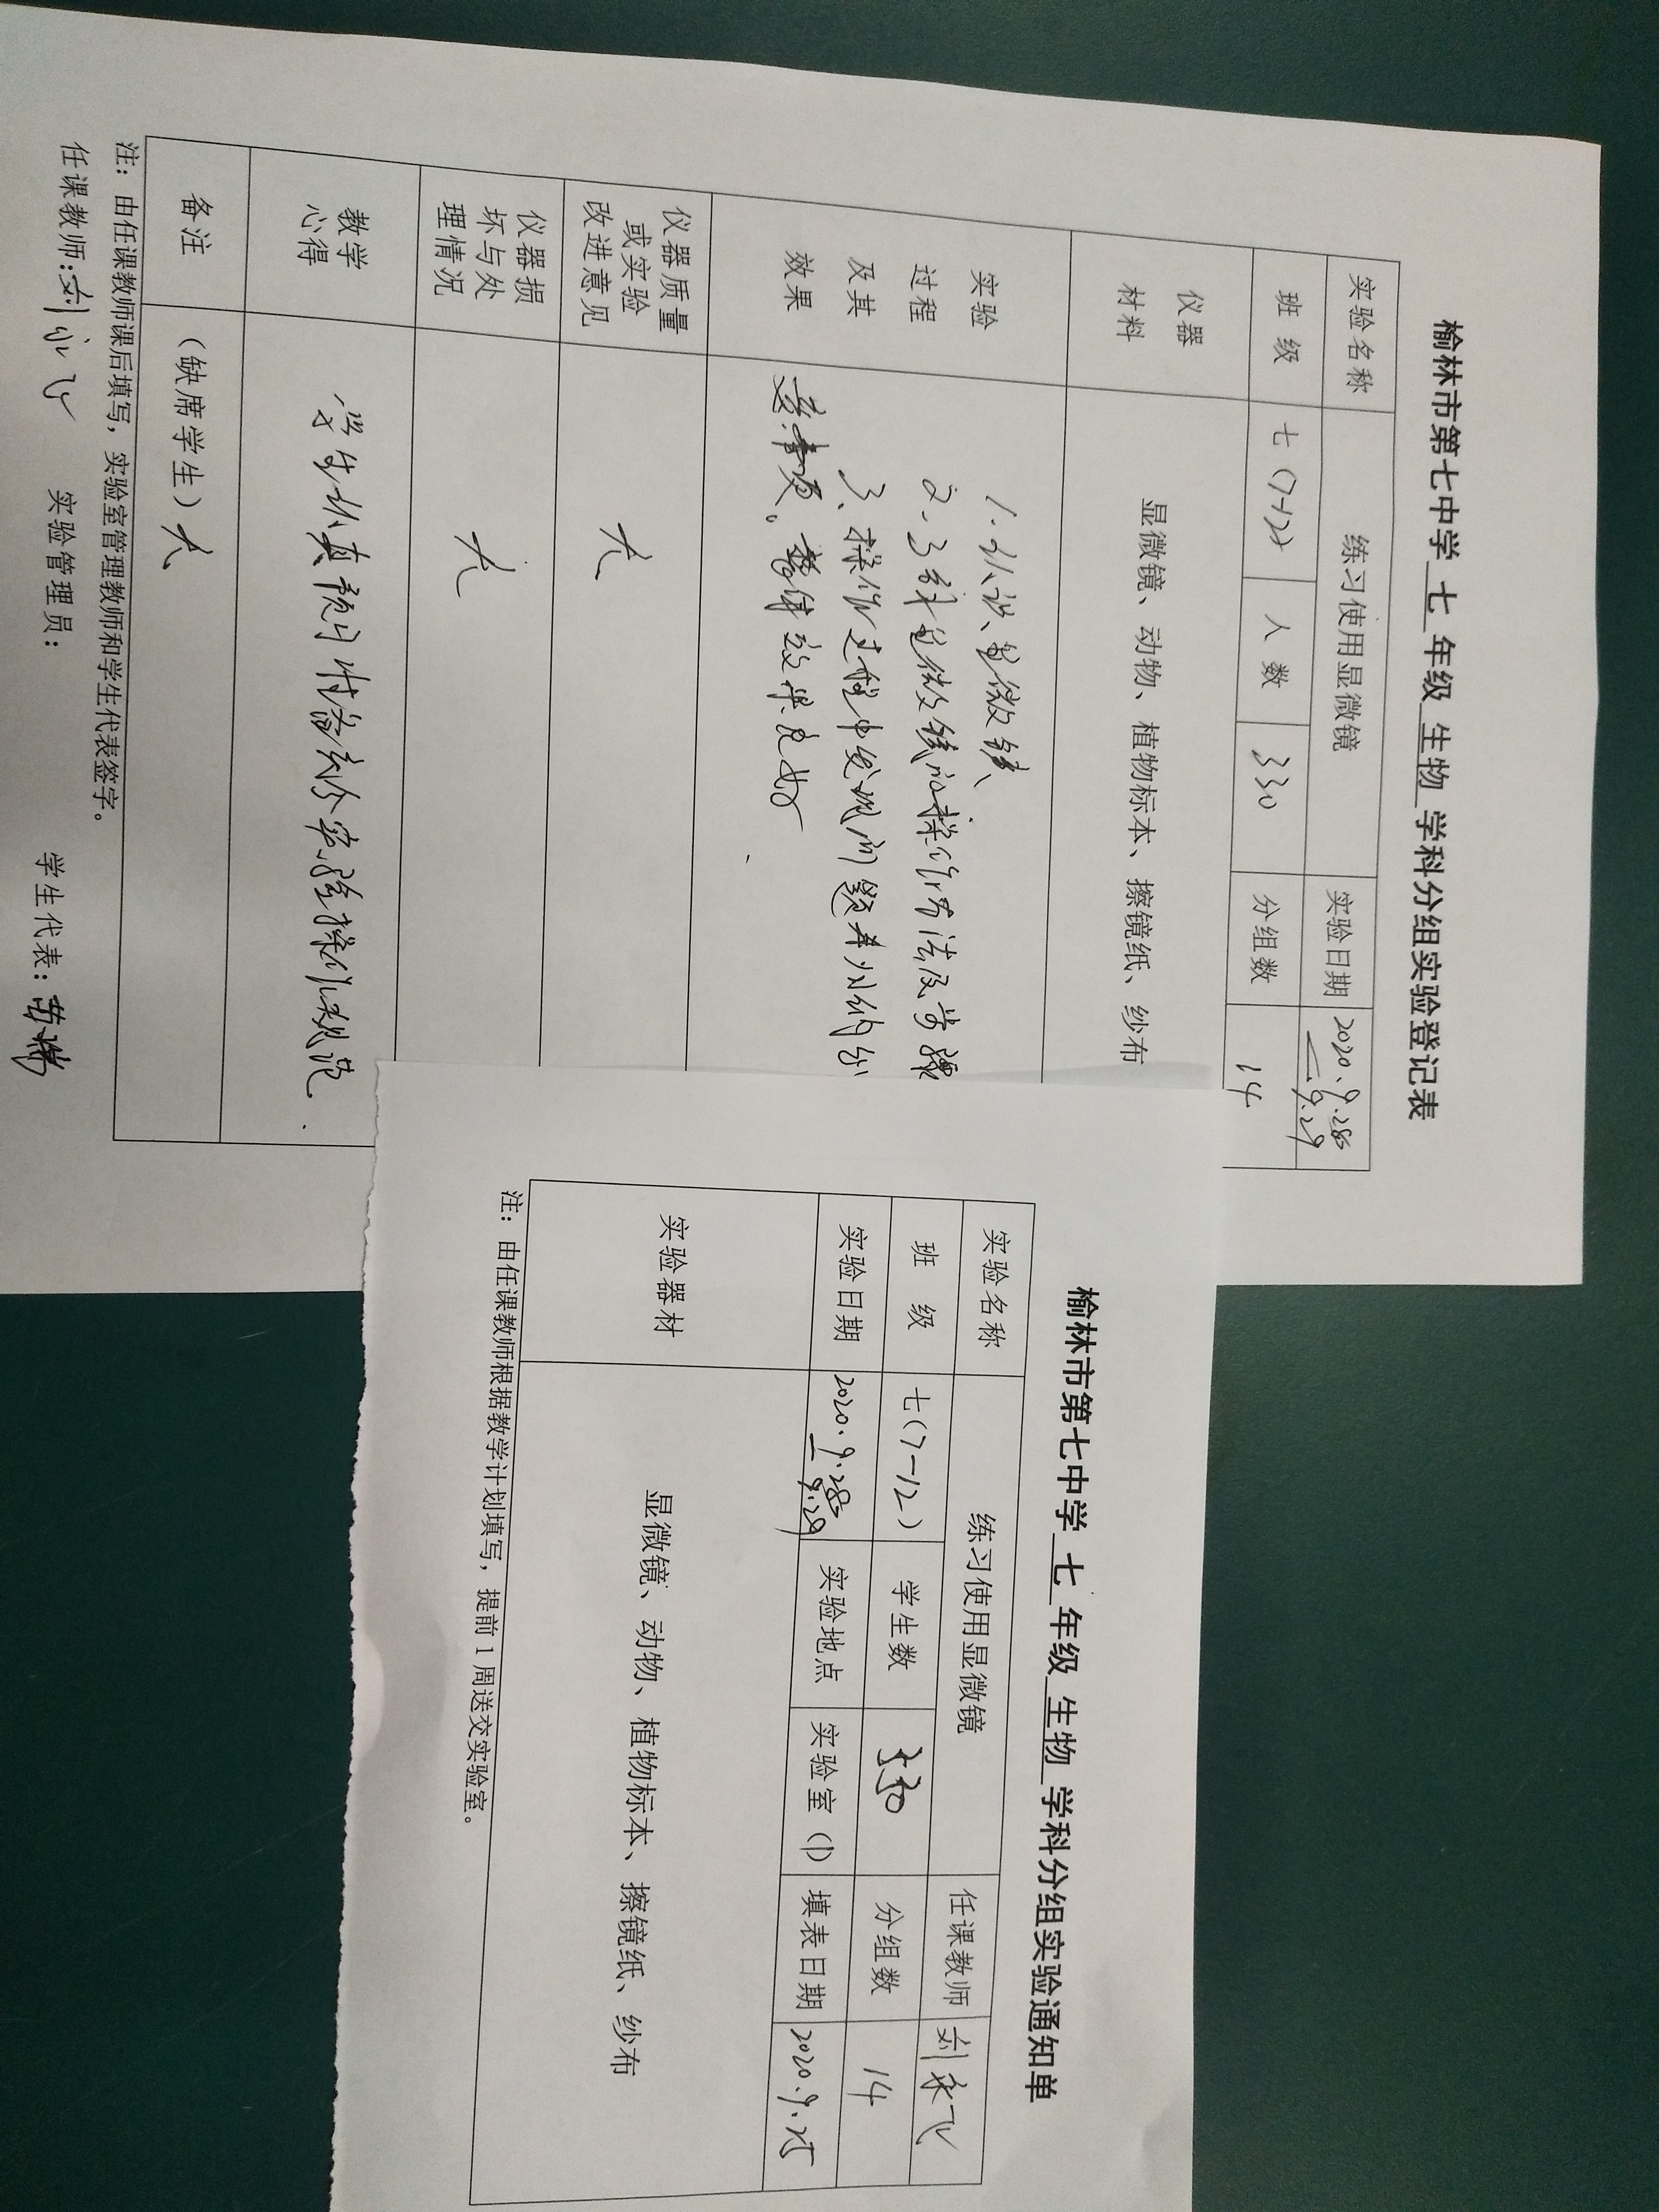 榆林市第七中学 七 年级 生物 学科分组实验登记表
实验名称 练习使用显微镜 实验日期 2020.9.28
—9.29
班 级 七(7-12) 人 数 330 分组数 14
仪器
材料
显微镜、动物、植物标本、擦镜纸、纱布
实验
过程
及其
效果
1.认识显微镜
2.了解显微镜的操作方法及步骤
3.操作过程中发现问题并归纳
整体效果良好
仪器质量
或实验
改进意见
无
仪器损
坏与处
理情况
无
教学
心得
学生认真预习准备充分实验操作规范.
备注
(缺席学生)无
注:由任课教师课后填写,实验室管理教师和学生代表签字。
任课教师:刘永飞 实验管理员: 学生代表:
榆林市第七中学 七 年级 生物 学科分组实验通知单
实验名称 练习使用显微镜 任课教师 刘永飞
班 级 七(7-12) 学生数 330 分组数 14
实验日期 2020.9.28
—9.29 实验地点 实验室(1) 填表日期 2020.9.25
实验器材 显微镜、动物、植物标本、擦镜纸、纱布
注:由任课教师根据教学计划填写,提前1周送交实验室。